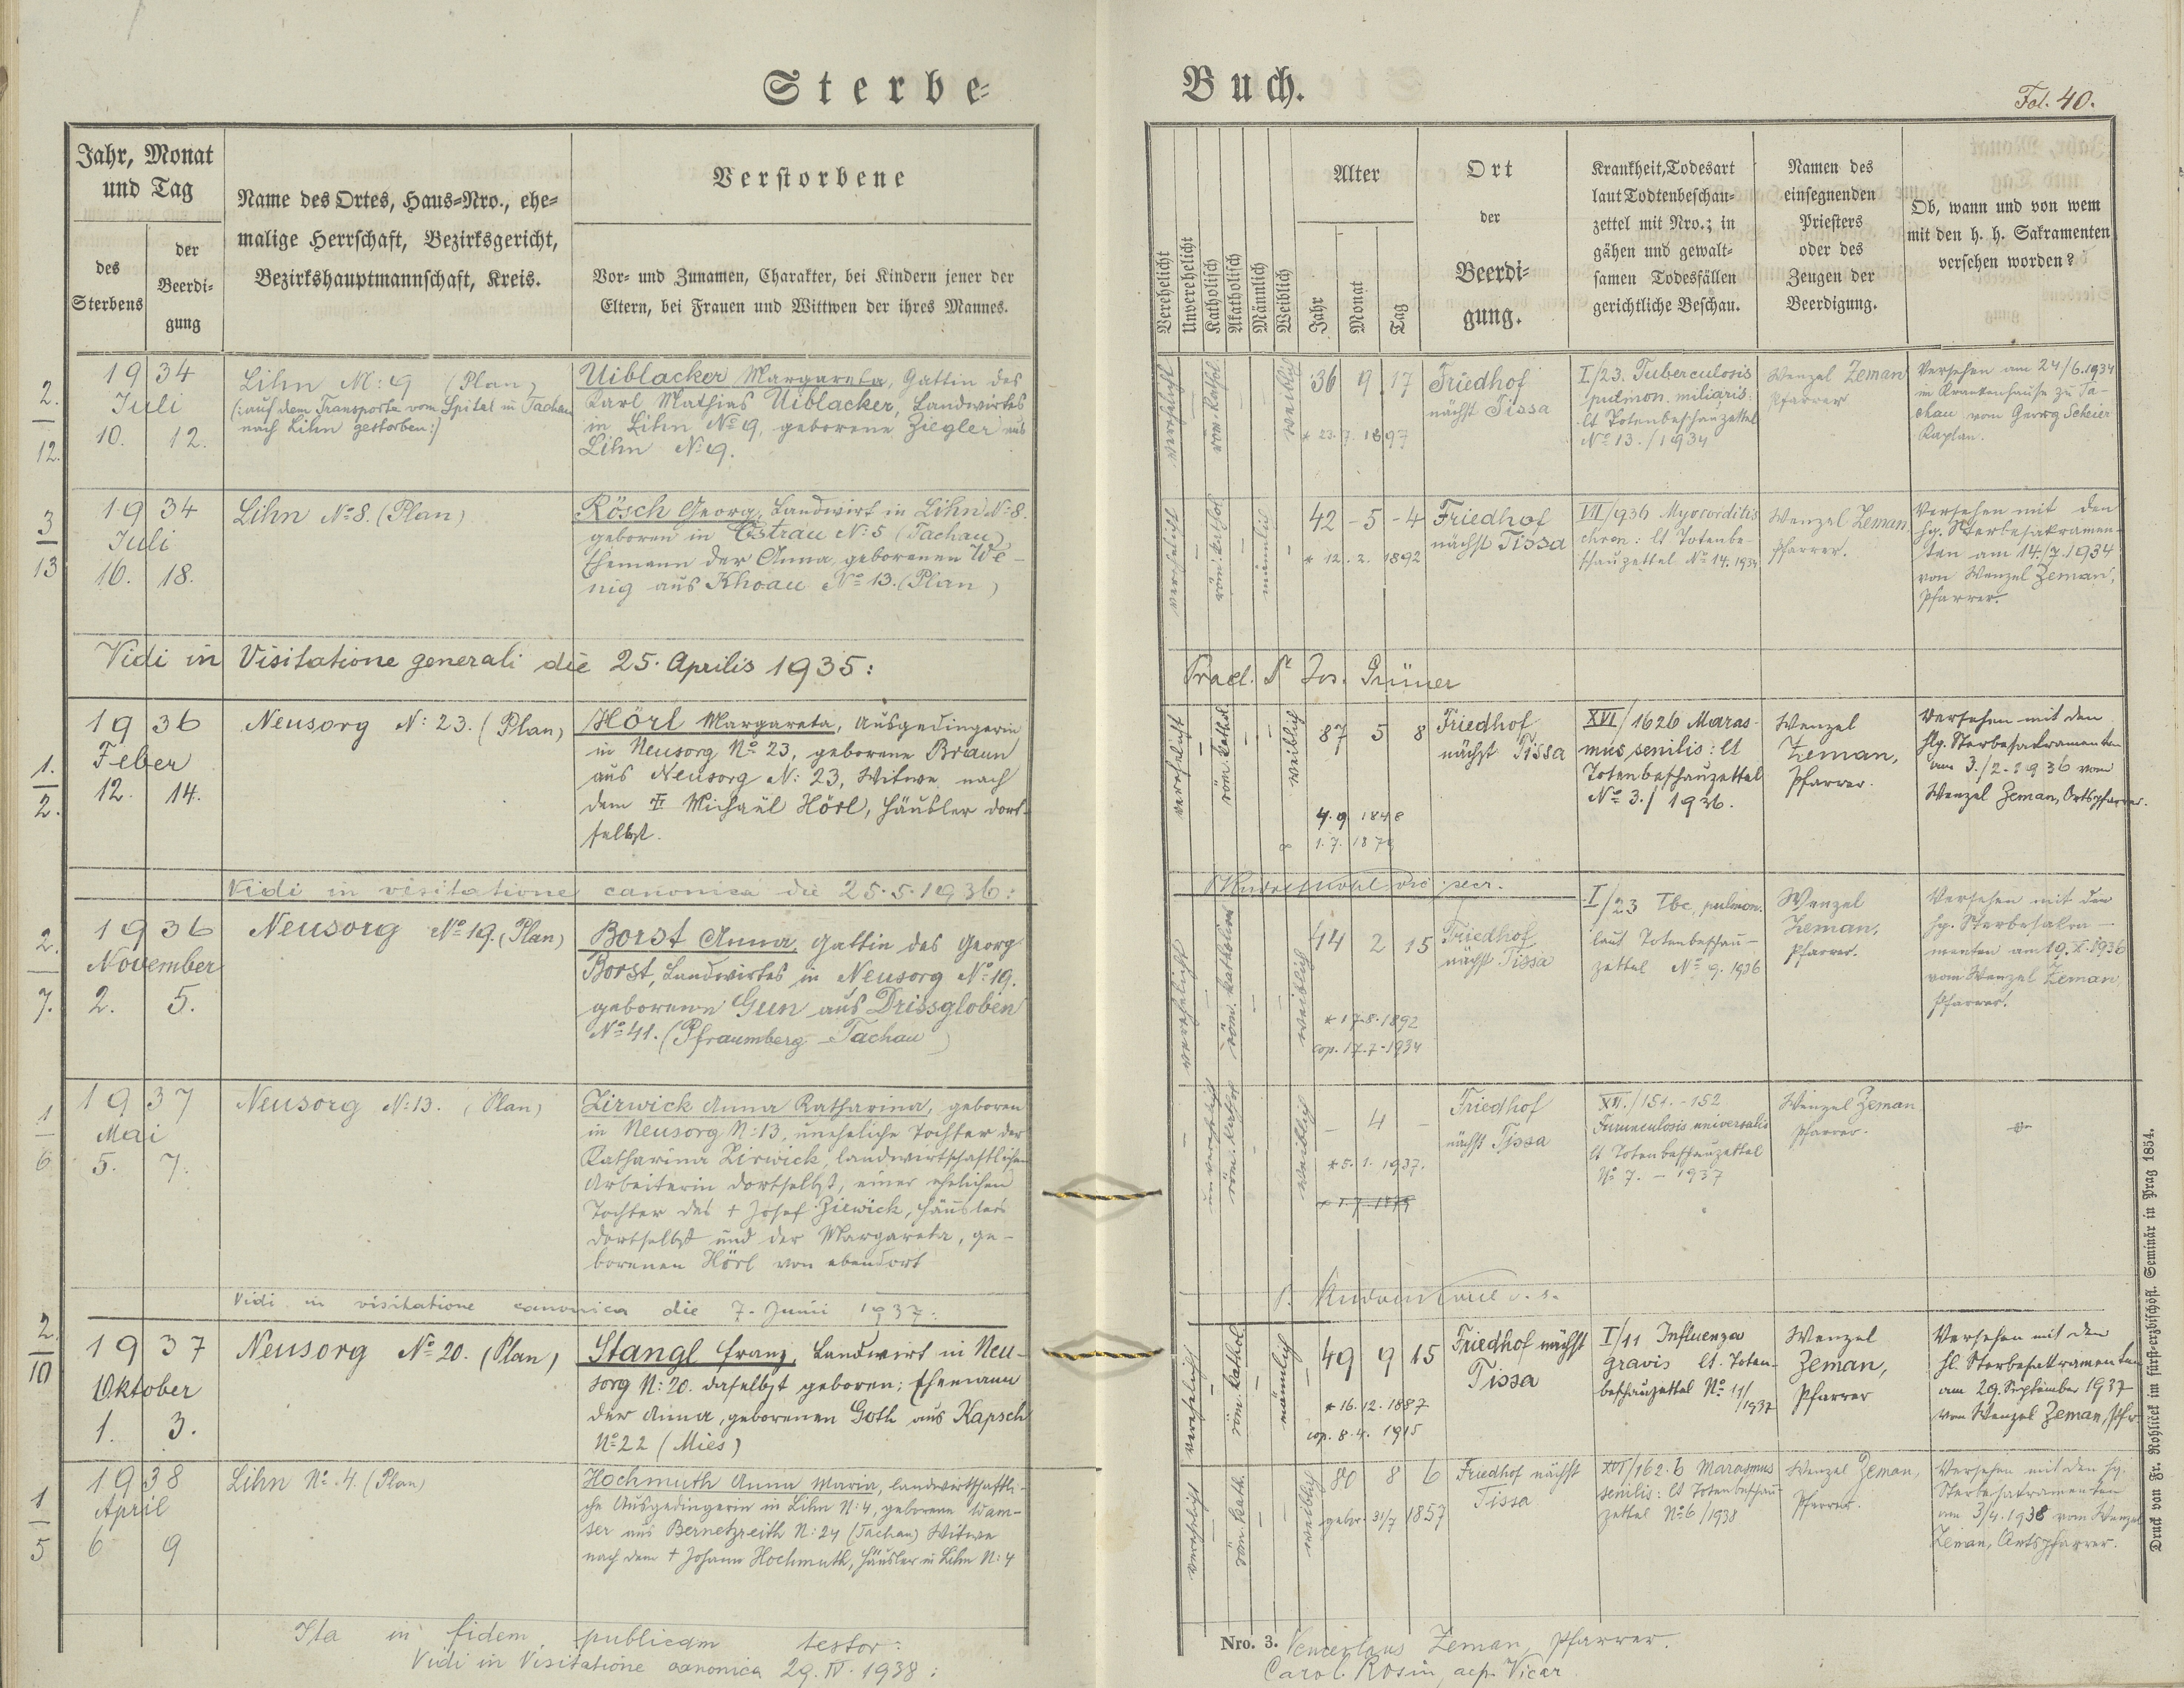 Sterbe-
Buch.
Fol. 40.
Jahr, Monat
und Tag
des
Sterbens
der
Beerdi-
gung
Name des Ortes, Haus-Nro., ehe-
malige Herrschaft, Bezirksgericht,
Bezirkshauptmannschaft, Kreis.
Verstorbene
Vor- und Zunamen, Charakter, bei Kindern jener der
Eltern, bei Frauen und Wittwen der ihres Mannes.
Verehelicht
Unverehelicht
Katholisch
Akatholisch
Männlich
Weiblich
Alter
Jahr
Monat
Tag
Ort
der
Beerdi-
gung.
Krankheit, Todesart
laut Todtenbeschau-
zettel mit Nro.; in
gähen und gewalt-
samen Todesfällen
gerichtliche Beschau.
Namen des
einsegnenden
Priesters
oder des
Zeugen der
Beerdigung.
Ob, wann und von wem
mit den h. h. Sakramenten
versehen worden?
2.
12.
1934
Juli
10. 12.
Lihn N: 9 (Plan)
(: auf dem Transporte vom Spital in Tachau
nach Lihn gestorben :)
Uiblacker Margareta, Gattin des
Karl Mathias Uiblacker, Landwirtes
in Lihn No 9, geborene Ziegler aus
Lihn N: 9.
verehelicht
röm. kathol.
weiblich
36 9 17
* 23. 7. 1897
Friedhof
nächst Tissa
I/23. Tuberculosis
pulmon. miliaris:
lt Totenbeschauzettel
No 13./1934
Wenzel Zeman
Pfarrer
Versehen am 24/6.1934
im Krankenhause zu Ta-
chau vom Georg Scheier
Kaplan.
3
13
1934
Juli
16. 18.
Lihn No 8. (Plan)
Rösch Georg, Landwirt in Lihn N: 8.
geboren in Ostrau N: 5 (Tachau)
Ehemann der Anna, geborenen We-
nig aus Khoau No 13. (Plan)
verehelicht
röm. kathol.
männlich
42 - 5 - 4
* 12. 2. 1892
Friedhof
nächst Tissa
VII/936 Myocorditis
chron: lt Totenbe-
schauzettel No 14. 1934
Wenzel Zeman
Pfarrer.
Versehen mit den
hg. Sterbesakramen-
ten am 14./7.1934
von Wenzel Zeman,
Pfarrer.
Vidi in Visitatione generali die 25. Aprilis 1935:
Prael. Dr Jos. Grüner
1.
2.
1936
Feber
12. 14.
Neusorg N: 23. (Plan)
Hörl Margareta, Ausgedingerin
in Neusorg No 23, geborene Braun
aus Neusorg N: 23, Witwe nach
dem † Michael Hörl, Häusler dort-
selbst.
verehelicht
röm. kathol.
weiblich
87 5 8
4. 9 1848
∞ 1. 7. 187
Friedhof
nächst Tissa
XVI/1626 Maras-
mus senilis: lt
Totenbeschauzettel
No 3./1936.
Wenzel
Zeman,
Pfarrer.
Versehen mit den
hlg. Sterbesakramenten
am 3./2.1936 vom
Wenzel Zeman, Ortspfarrer.
Vidi in visitatione canonica die 25.5.1936:
2.
7.
1936
November
2. 5.
Neusorg No 19. (Plan)
Borst Anna, Gattin des Georg
Borst, Landwirtes in Neusorg No 19.
geborene Gun aus Drissgloben
No 41. (Pfraumberg - Tachau)
verehelicht
röm. katholisch
weiblich
44 2 15
* 17.8.1892
cop. 17.7.1934
Friedhof
nächst Tissa
I/23 Tbc. pulmon.
laut Totenbeschau-
zettel No 9. 1936
Wenzel
Zeman,
Pfarrer.
Versehen mit den
hg. Sterbesakra-
menten am 19.X.1936
vom Wenzel Zeman
Pfarrer.
1
6
1937
Mai
5. 7.
Neusorg N: 13. (Plan)
Zirwick Anna Katharina, geboren
in Neusorg N: 13, uneheliche Tochter der
Katharina Zirwick, landwirtschaftlichen
Arbeiterin dortselbst, einer ehelichen
Tochter des † Josef Zirwick, Häuslers
dortselbst und der Margareta, ge-
borenen Hörl von ebendort
unverehelicht
röm. kathol.
weiblich
- 4 -
* 5. 1. 1937.
Friedhof
nächst Tissa
XII./151.-152
Furunculosis universalis
lt Totenbeschauzettel
No 7. - 1937
Wenzel Zeman
Pfarrer.
Vidi in visitatione canonica die 7. Junii 1937:
2.
10
1937
Oktober
1. 3.
Neusorg No 20. (Plan)
Stangl Franz, Landwirt in Neu-
sorg N: 20. daselbst geboren; Ehemann
der Anna, geborenen Goth aus Kapsch
No 22 (Mies)
verehelicht
röm. kathol.
männlich
49 9 15
* 16. 12. 1887
cop. 8. 4. 1915
Friedhof nächst
Tissa
I/11 Influenza
gravis lt. Toten-
beschauzettel No 11/
1937
Wenzel
Zeman,
Pfarrer
Versehen mit den
hl. Sterbesakramenten
am 29. September 1937
vom Wenzel Zeman, Pfr
1
5
1938
April
6 9
Lihn No 4. (Plan)
Hochmuth Anna Maria, landwirtschaftli-
che Ausgedingerin in Lihn N: 4, geborene Wam-
ser aus Bernetzreith N: 24 (Tachau) Witwe
nach dem † Johann Hochmuth, Häusler in Lihn N: 4
verehelicht
röm. kath.
weiblich
80 8 6
gebor. 31/7 1857
Friedhof nächst
Tissa
XVI/162.b Marasmus
senilis: lt Totenbeschau-
zettel No 6/1938
Wenzel Zeman,
Pfarrer.
Versehen mit den hg.
Sterbesakramenten
am 3/4.1938 vom Wenzel
Zeman, Ortspfarrer.
Ita in fidem publicam testor:
Nro. 3.
Venceslaus Zeman, Pfarrer.
Vidi in Visitatione canonica 29. IV. 1938:
Carol. Rosin, aep. Vicar
Druck von Fr. Rohlicek im fürst-erzbischöfl. Seminär in Prag 1854.